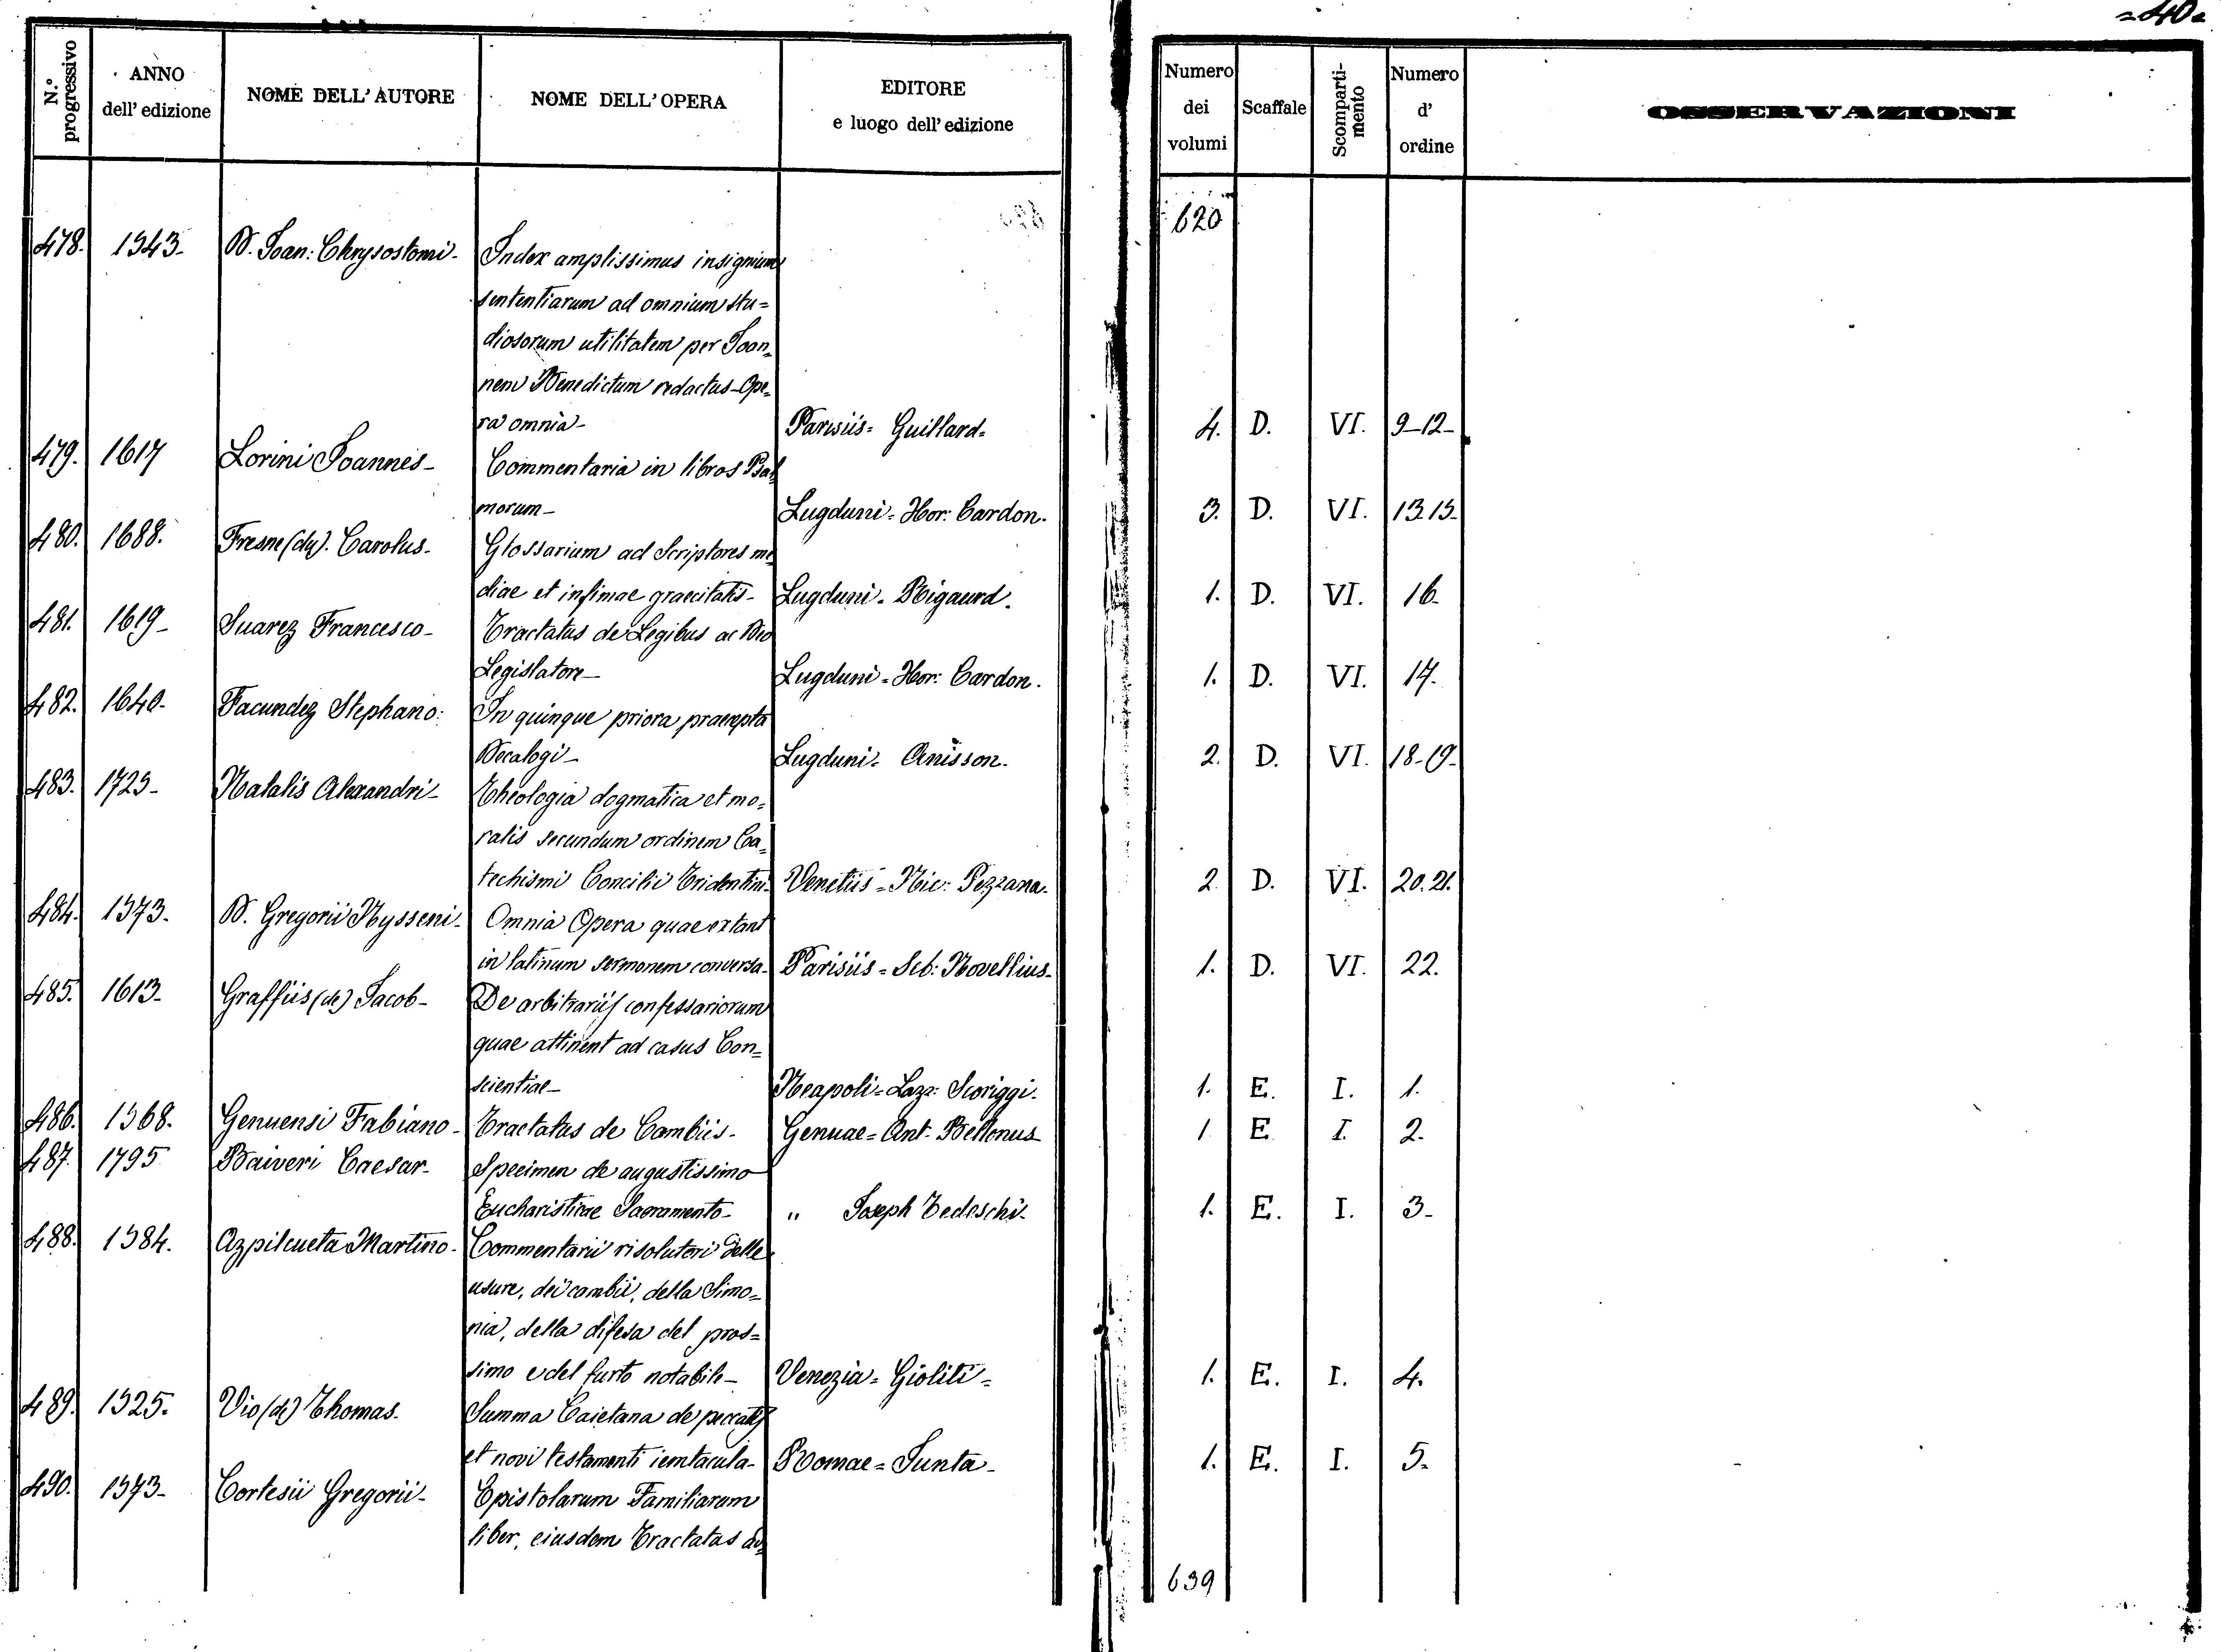 =40=
N.° progressivo
ANNO dell' edizione
NOME DELL' AUTORE
NOME DELL' OPERA
EDITORE e luogo dell' edizione
Numero dei volumi
Scaffale
Scomparti-mento
Numero d' ordine
OSSERVAZIONI
620
478. 1543- D. Joan: Chrysostomi- Index amplissimus insignium
sententiarum ad omnium stu=
diosorum utilitatem per Joan=
nem Benedictum redactus-Ope=
ra omnia- Parisiis= Guillard= 4. D. VI. 9-12-
479. 1617 Lorini Joannes- Commentaria in libros Psal
morum- Lugduni= Hor: Cardon. 3. D. VI. 13.15-
480. 1688. Fresne (du). Carolus- Glossarium ad Scriptores me
diae et infimae graecitatis- Lugduni= Rigaurd. 1. D. VI. 16-
481. 1619- Suarez Francesco- Tractatus de Legibus ac Deo
Legislatore- Lugduni=Hor: Cardon. 1. D. VI. 17-
482. 1640- Facundez Stephano: In quinque priora praecepta
Decalogi- Lugduni= Anisson. 2. D. VI. 18-19-
483. 1725- Natalis Alexandri- Theologia dogmatica et mo=
ralis secundum ordinem Ca=
techismi Concilii Tridentini Venetiis=Nic: Pezzana. 2. D. VI. 20.21.
484. 1573. D. Gregorii Nysseni- Omnia Opera quae extant
in latinum sermonem conversa- Parisiis=Seb: Novellius- 1. D. VI. 22.
485. 1613- Graffiis (de) Jacob- De arbitrariis confessariorum
quae attinent ad casus Con=
scientiae- Neapoli=Lazz: Scoriggi. 1. E. I. 1.
486. 1568. Genuensi Fabiano- Tractatus de Cambiis- Genuae=Ant. Bellonus 1 E I. 2.
487. 1795 Baiveri Caesar- Specimen de augustissimo
Eucharistiae Sacramento- " Joseph Tedeschi- 1. E. I. 3-
488. 1584. Azpilcueta Martino- Commentarii risolutori delle
usure, dei cambii, della Simo=
nia, della difesa del pros=
simo e del furto notabile- Venezia= Gioliti= 1. E. I. 4.
489. 1525. Vio (de) Thomas- Summa Caietana de peccatis
et novi testamenti ientacula- Romae=Junta- 1. E. I. 5.
490. 1573- Cortesii Gregorii- Epistolarum Familiarum
liber, eiusdem Tractatus
639